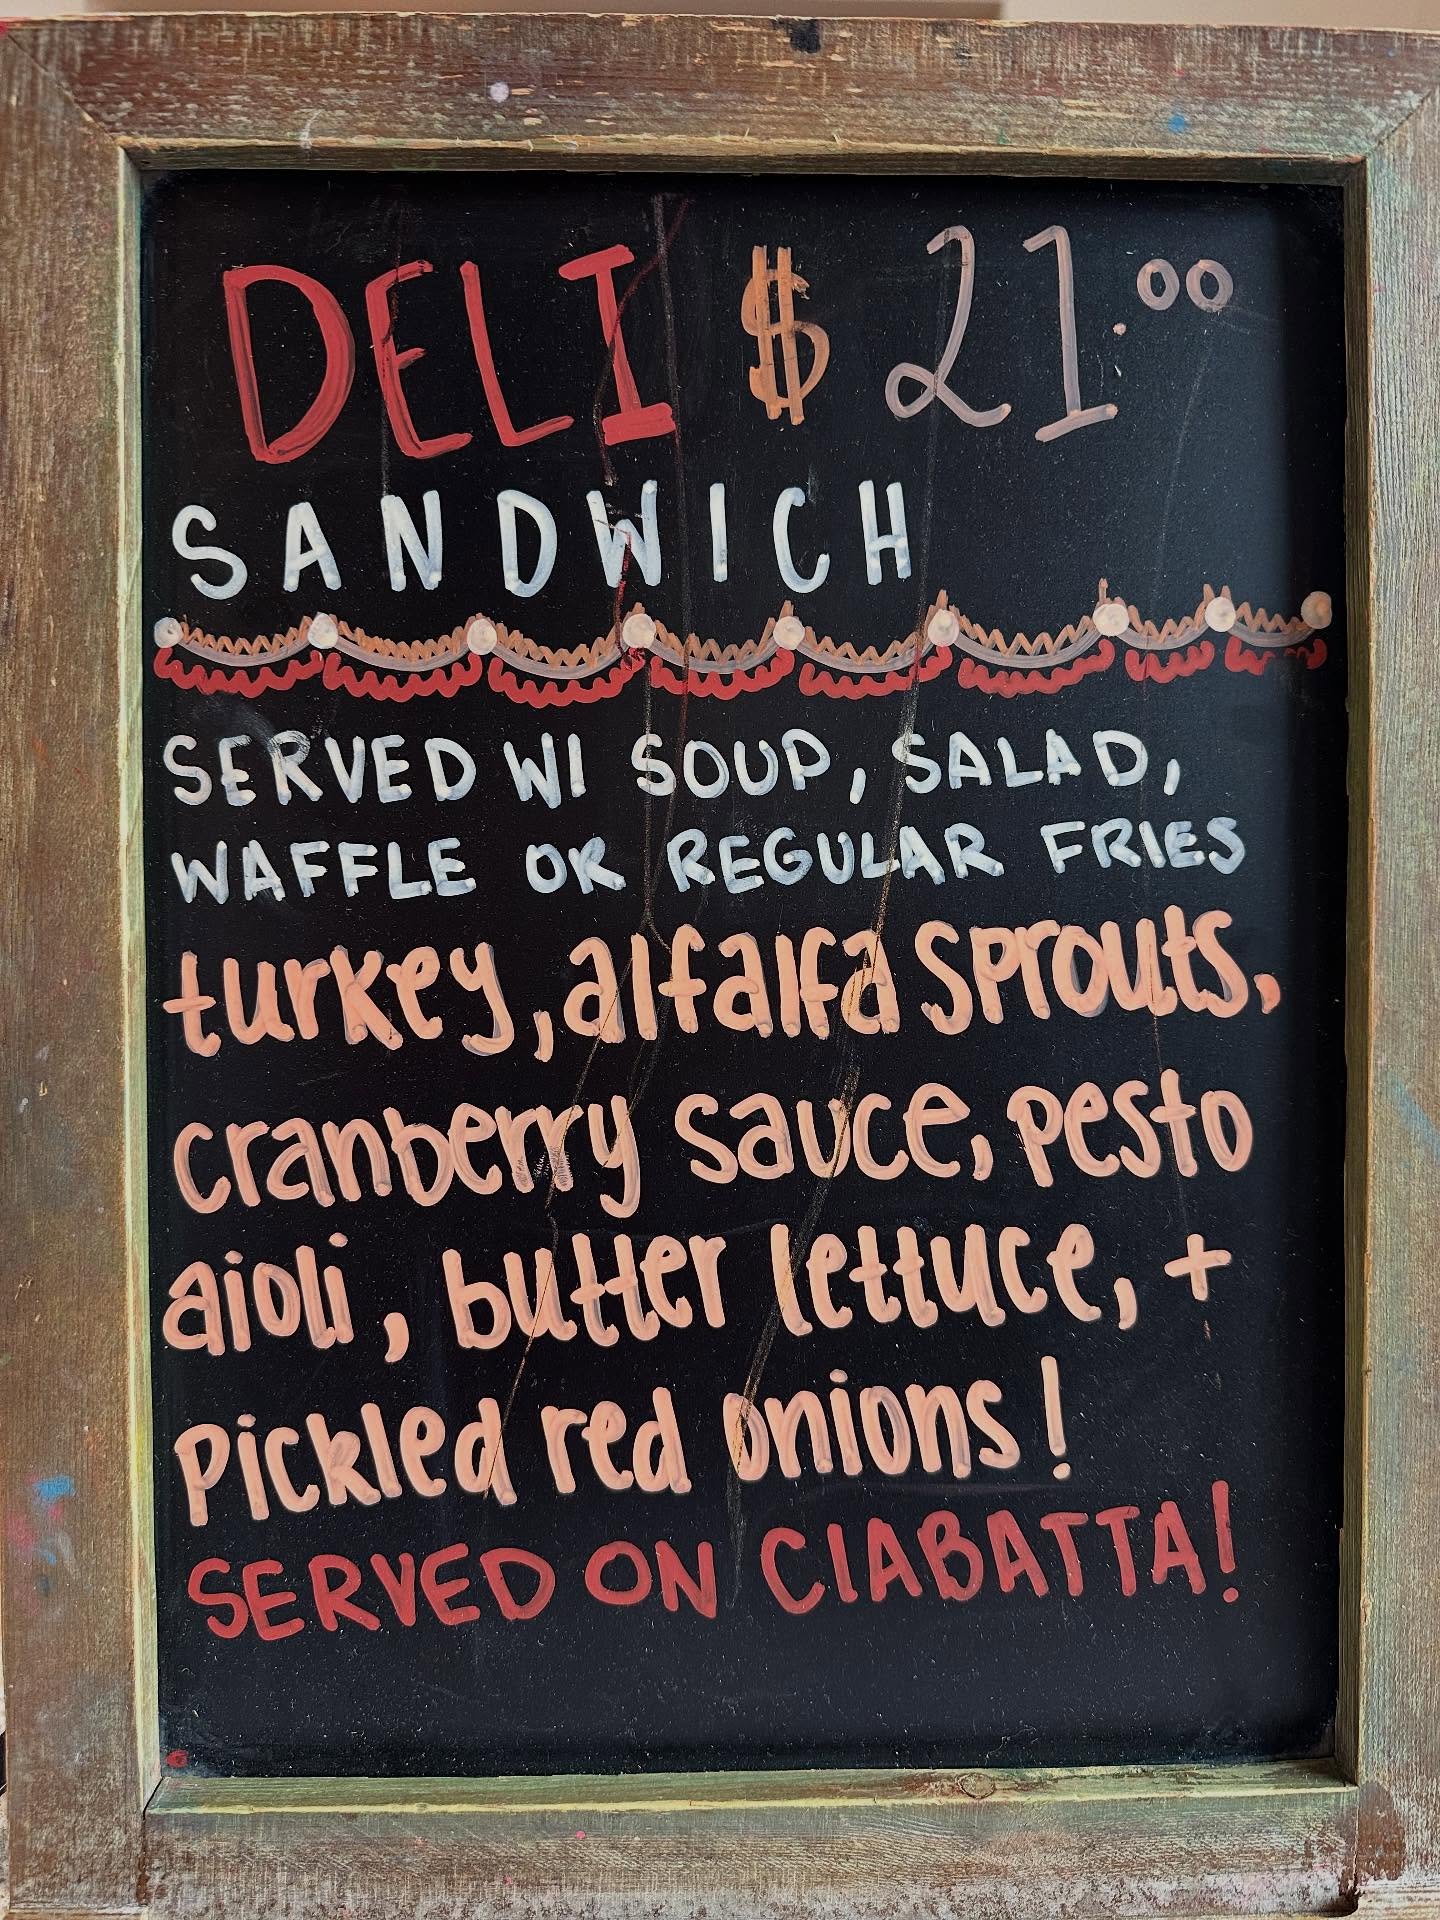 DELI $ 21.00
SANDWICH
SERVED W/ SOUP, SALAD,
WAFFLE OR REGULAR FRIES
turkey, alfalfa sprouts,
cranberry sauce, pesto
aioli, butter lettuce, +
pickled red onions!
SERVED ON CIABATTA!